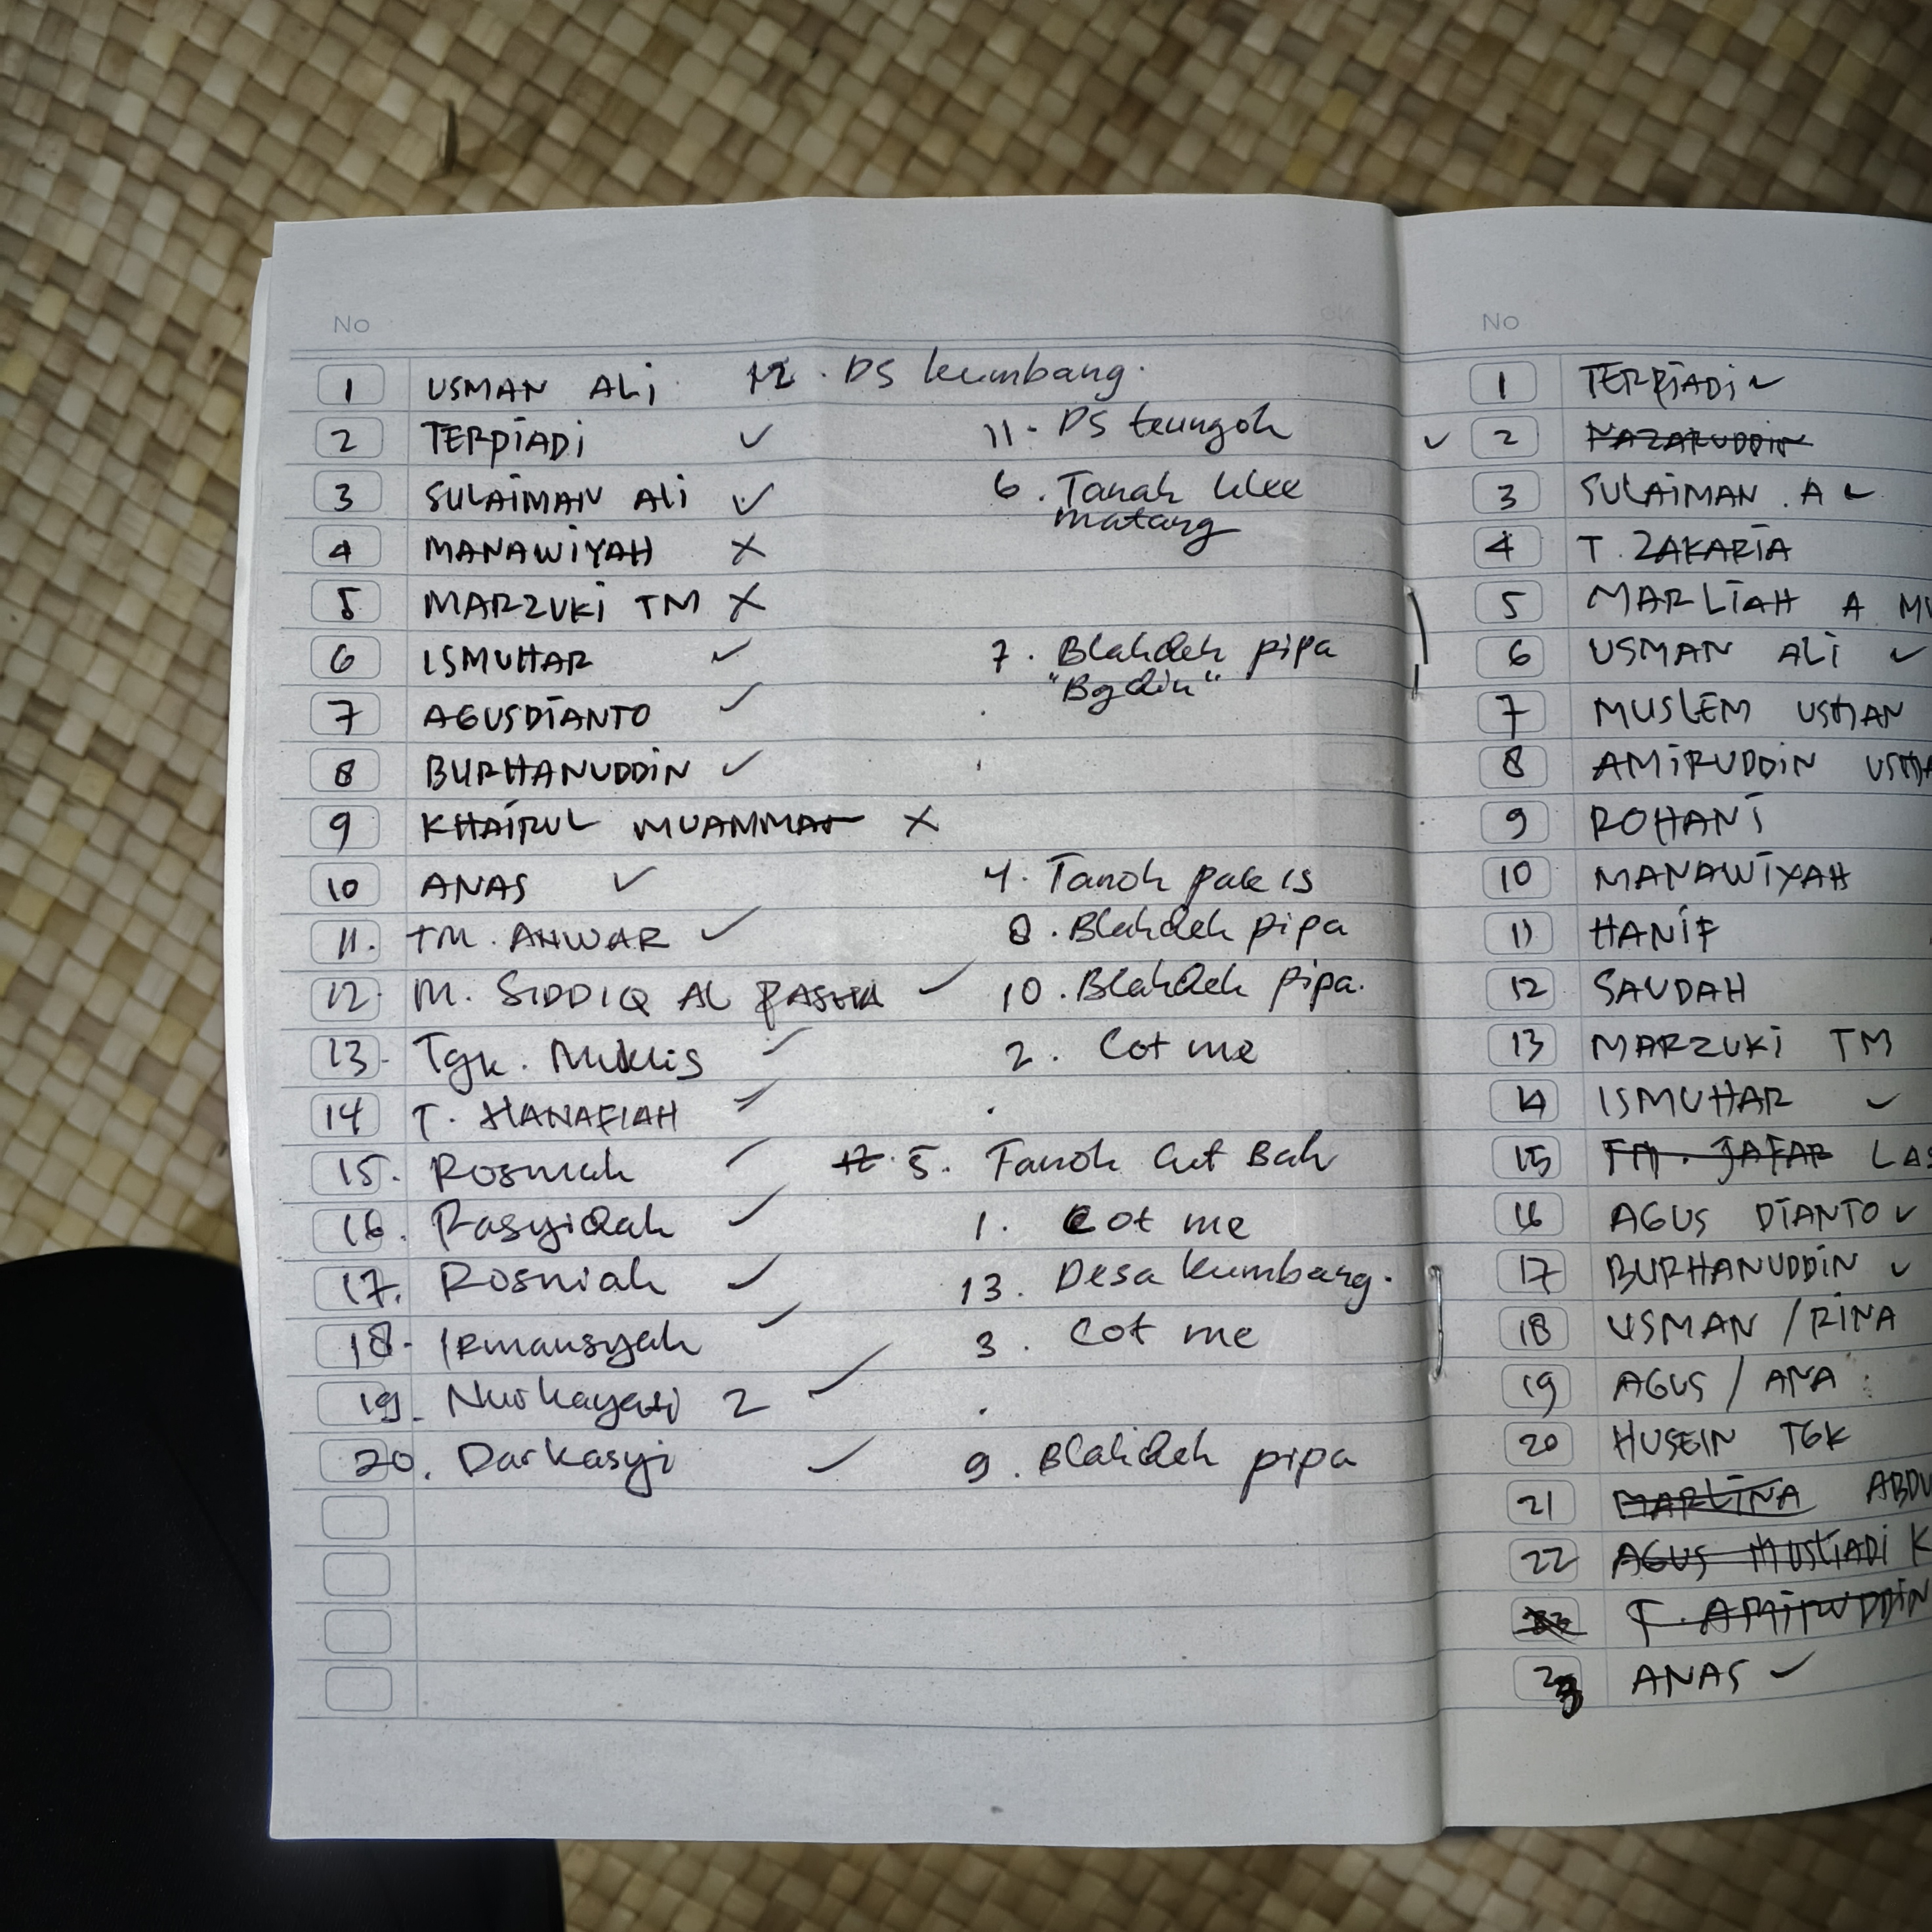 No
1 USMAN ALi 12. DS kumbang.
2 TERPiADi ✓ 11. DS teungoh
3 SULAiMAN ALi ✓ 6. Tanah
matang
4 MANAWiYAH X
5 MARZUKi TM X
6 ISMUHAR ✓ 7. Blahdeh pipa
"Bgdin"
7 AGUSDiANTO ✓
8 BURHANUDDiN ✓
9 KHAiRUL MUAMMAR X
10 ANAS ✓ 4. Tanoh pakis
11. TM. ANWAR ✓ 8. Blahdeh pipa
12. M. SIDDIQ AL ✓ 10. Blahdeh pipa.
13. Tgk. Muklis ✓ 2. Cot me
14 T. HANAFIAH ✓
15. Rosmah ✓ 12. 5. Tanoh Cut Bah
16. Rasyidah ✓ 1. Cot me
17. Rosniah ✓ 13. Desa kumbang.
18. IRmansyah ✓ 3. Cot me
19. Nurhayati 2 ✓
20. Darkasyi ✓ 9. Blahdeh pipa
No
1 TERPiADi ✓
✓ 2 NAZARUDDiN
3 SULAiMAN . A ✓
4 T. ZAKARiA
5 MARLiAH A MU
6 USMAN ALi ✓
7 MUSLEM USMAN
8 AMiRUDDiN USMA
9 ROHANi
10 MANAWiYAH
11 HANiF
12 SAUDAH
13 MARZUKi TM
14 ISMUHAR ✓
15 TM. JAFAR LAS
16 AGUS DiANTO ✓
17 BURHANUDDiN ✓
18 USMAN / RiNA
19 AGUS / ANA
20 HUSEIN TGK
21 MARLiNA ABDU
22 AGUS MUSLiADi K
23 T. AMiRUDDiN
23 ANAS ✓